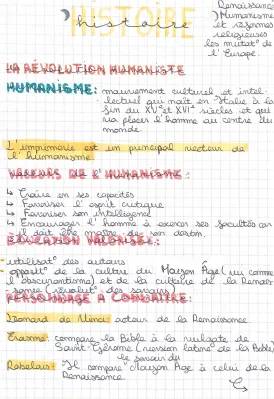 HISTOIRE
histoire
Renaissance
Humanisme
et réformes
religieuses
les mutat° de
l'Europe.
LA RÉVOLUTION HUMANISTE
HUMANISME: mouvement culturel et intel-
lectuel qui naît en Italie à la
fin du XVe et XVIe siècles et qui
va placer l'homme au centre du
monde.
L'imprimerie est un principal vecteur de
l'humanisme
VALEURS DE L'HUMANISME :
↳ Croire en ses capacités
↳ Favoriser l'esprit critique
↳ Favoriser son intelligence
↳ Encourager l'homme à exercer ses facultés car
il doit être maître de son destin.
ÉDUCATION VALORISÉE :
- utilisat° des auteurs
- opposit° de la culture du Moyen Âge (vu comme
l'obscurantisme) et de la culture de la Renais-
-sance (révolut° des savoirs)
PERSONNAGE À CONNAÎTRE:
Léonard de Vinci : acteur de la Renaissance
Erasme: compare la Bible à la vulgate de
Saint-Jérôme (version latine de la Bible)
le savoir du
Rabelais: Il compare Moyen Âge à celui de la
Renaissance